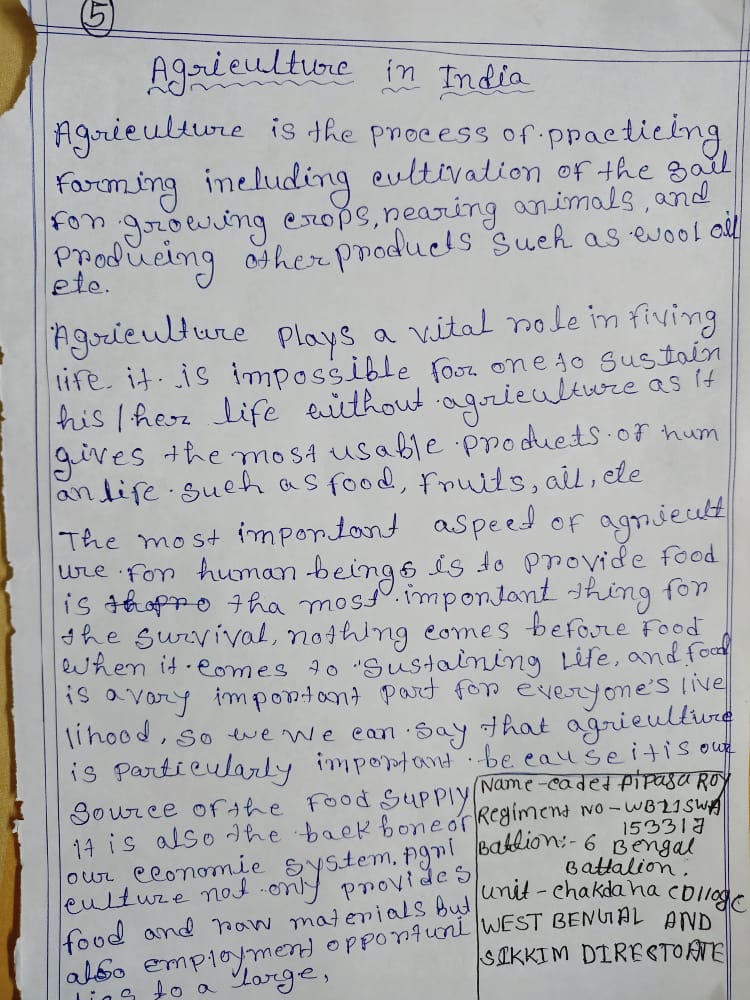 5
Agriculture in India
Agriculture is the process of practicing
Farming including cultivation of the sail
for growing crops, rearing animals, and
producing other products such as wool oil
etc.
Agriculture plays a vital role in fiving
life. it is impossible for one to sustain
his / her life without agriculture as it
gives the most usable products of hum
an life such as food, fruits, ail, etc
The most important aspect of agricult
ure for human beings is to provide food
is tha most important thing for
the survival, nothing comes before food
when it comes to "sustaining Life, and food
is a vary important part for everyone's live
lihood, so we we can say that agriculture
is particularly important because it is our
source of the food supply
it is also the backbone of
our economic system. Agri
culture not only provides
food and raw materials but
also employment opportuni
ties to a large,
Name - cadet Pipasa Roy
Regiment No - WB21SWA
153317
Battlion:- 6 Bengal
Battalion.
unit - chakdaha college
WEST BENGAL AND
SIKKIM DIRECTOATE